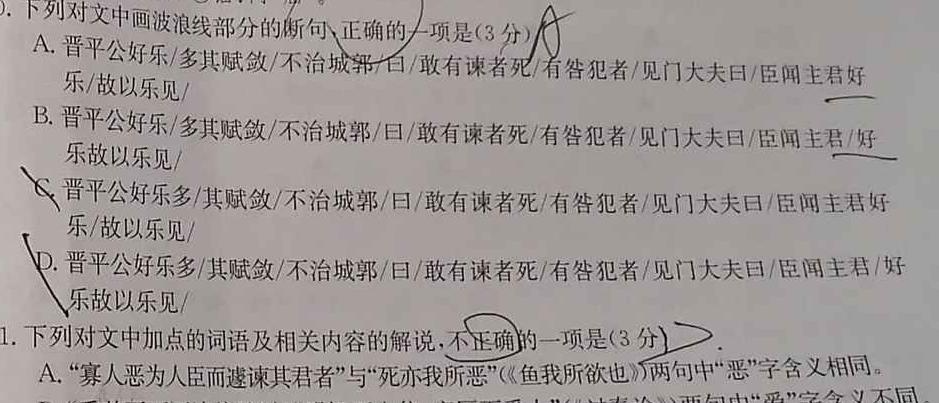 0. 下列对文中画波浪线部分的断句,正确的一项是(3分) A
A. 晋平公好乐/多其赋敛/不治城郭/曰/敢有谏者死/有咎犯者/见门大夫曰/臣闻主君好
乐/故以乐见/
B. 晋平公好乐/多其赋敛/不治城郭/曰/敢有谏者死/有咎犯者/见门大夫曰/臣闻主君/好
乐故以乐见/
C. 晋平公好乐多/其赋敛/不治城郭/曰/敢有谏者死/有咎犯者/见门大夫曰/臣闻主君好
乐/故以乐见/
D. 晋平公好乐多/其赋敛/不治城郭/曰/敢有谏者死/有咎犯者/见门大夫曰/臣闻主君/好
乐故以乐见/
1. 下列对文中加点的词语及相关内容的解说,不正确的一项是(3分)
A. “寡人恶为人臣而遽谏其君者”与“死亦我所恶”(《鱼我所欲也》)两句中“恶”字含义相同。
两句中“爱”字含义不同。